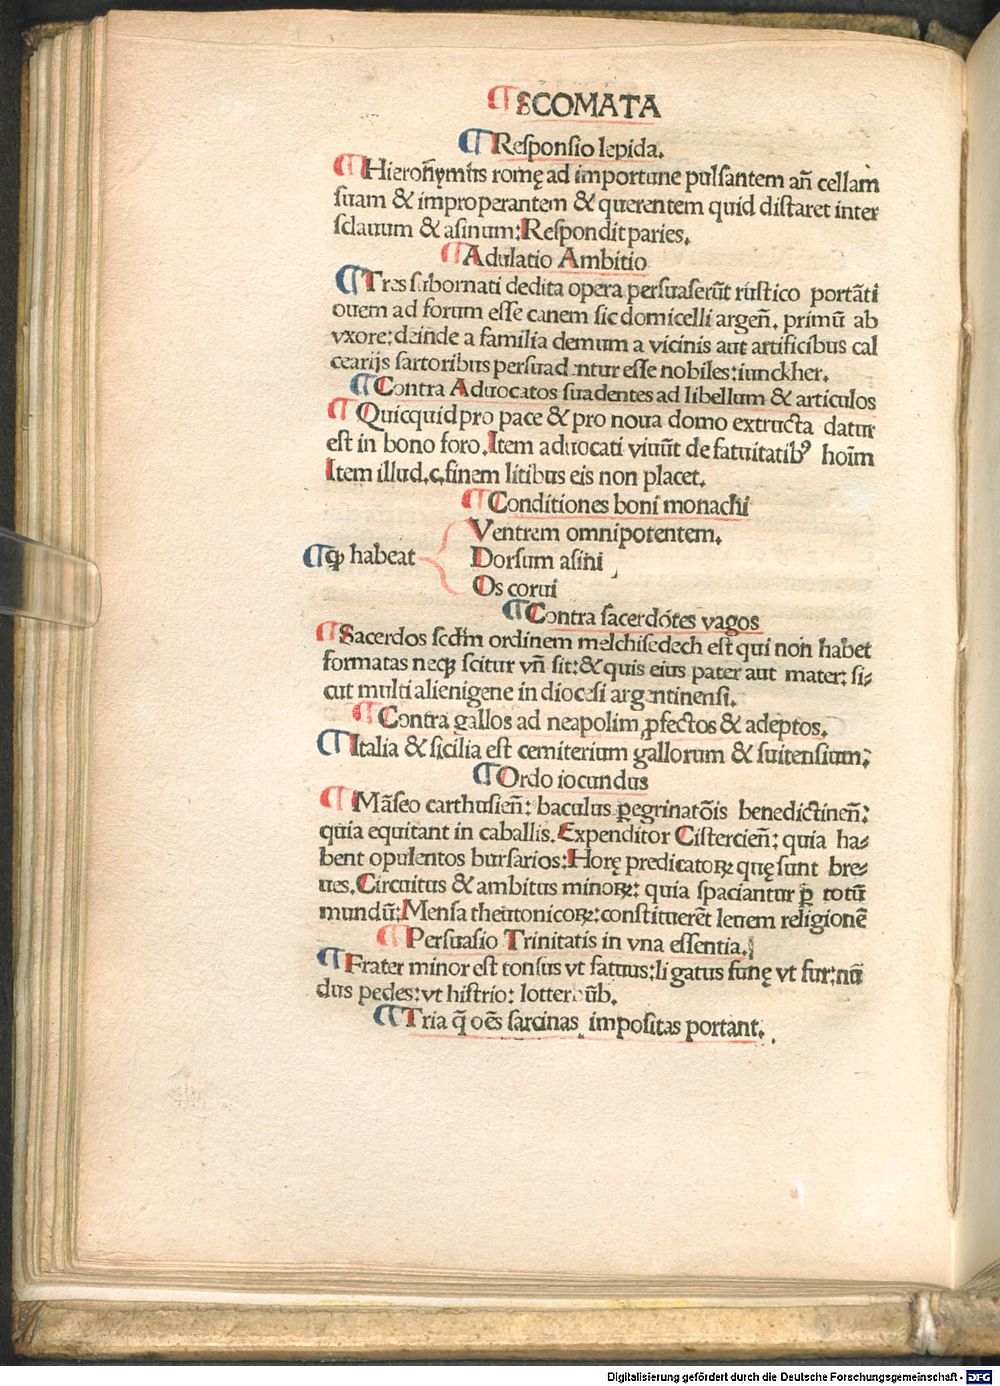 ¶ SCOMATA
¶ Responsio lepida.
¶ Hieron̄ymus romę ad importune pulsantem an̄ cellam
suam & improperantem & querentem quid distaret inter
sclauum & asinum: Respondit paries.
¶ Adulatio Ambitio
¶ Tres subornati dedita opera persuaserūt rustico portāti
ouem ad forum esse canem sic domicelli argen̄. primū ab
vxore: deinde a familia demum a vicinis aut artificibus cal
cearijs sartoribus persuadentur esse nobiles: iunckher.
¶ Contra Aduocatos suadentes ad libellum & articulos
¶ Quicquid pro pace & pro noua domo extructa datur
est in bono foro. Item aduocati viuūt de fatuitatibꝰ hoīm
Item illud. c. finem litibus eis non placet.
¶ Conditiones boni monachi
Ventrem omnipotentem.
¶ ꝙ habeat Dorsum asini
Os corui
¶ Contra sacerdotes vagos
¶ Sacerdos scd̄m ordinem melchisedech est qui non habet
formatas necꝫ scitur vn̄ sit: & quis eius pater aut mater: si⸗
cut multi alienigene in diocesi argentinensi.
¶ Contra gallos ad neapolim ꝓfectos & adeptos.
¶ Italia & sicilia est cemiterium gallorum & suitensium:
¶ Ordo iocundus
¶ Māseo carthusien̄: baculus ꝑegrinatōis benedictinen̄:
quia equitant in caballis. Expenditor Cistercien̄: quia ha⸗
bent opulentos bursarios: Horę predicatoꝝ quę sunt bre⸗
ues. Circuitus & ambitus minoꝝ: quia spaciantur ꝑ totū
mundū: Mensa theutonicoꝝ: constituerēt leuem religionē
¶ Persuasio Trinitatis in vna essentia.
¶ Frater minor est tonsus vt fatuus: ligatus funę vt fur: nu
dus pedes: vt histrio: lotter ūb.
¶ Tria q̄ oēs sarcinas impositas portant.
Digitalisierung gefördert durch die Deutsche Forschungsgemeinschaft - DFG